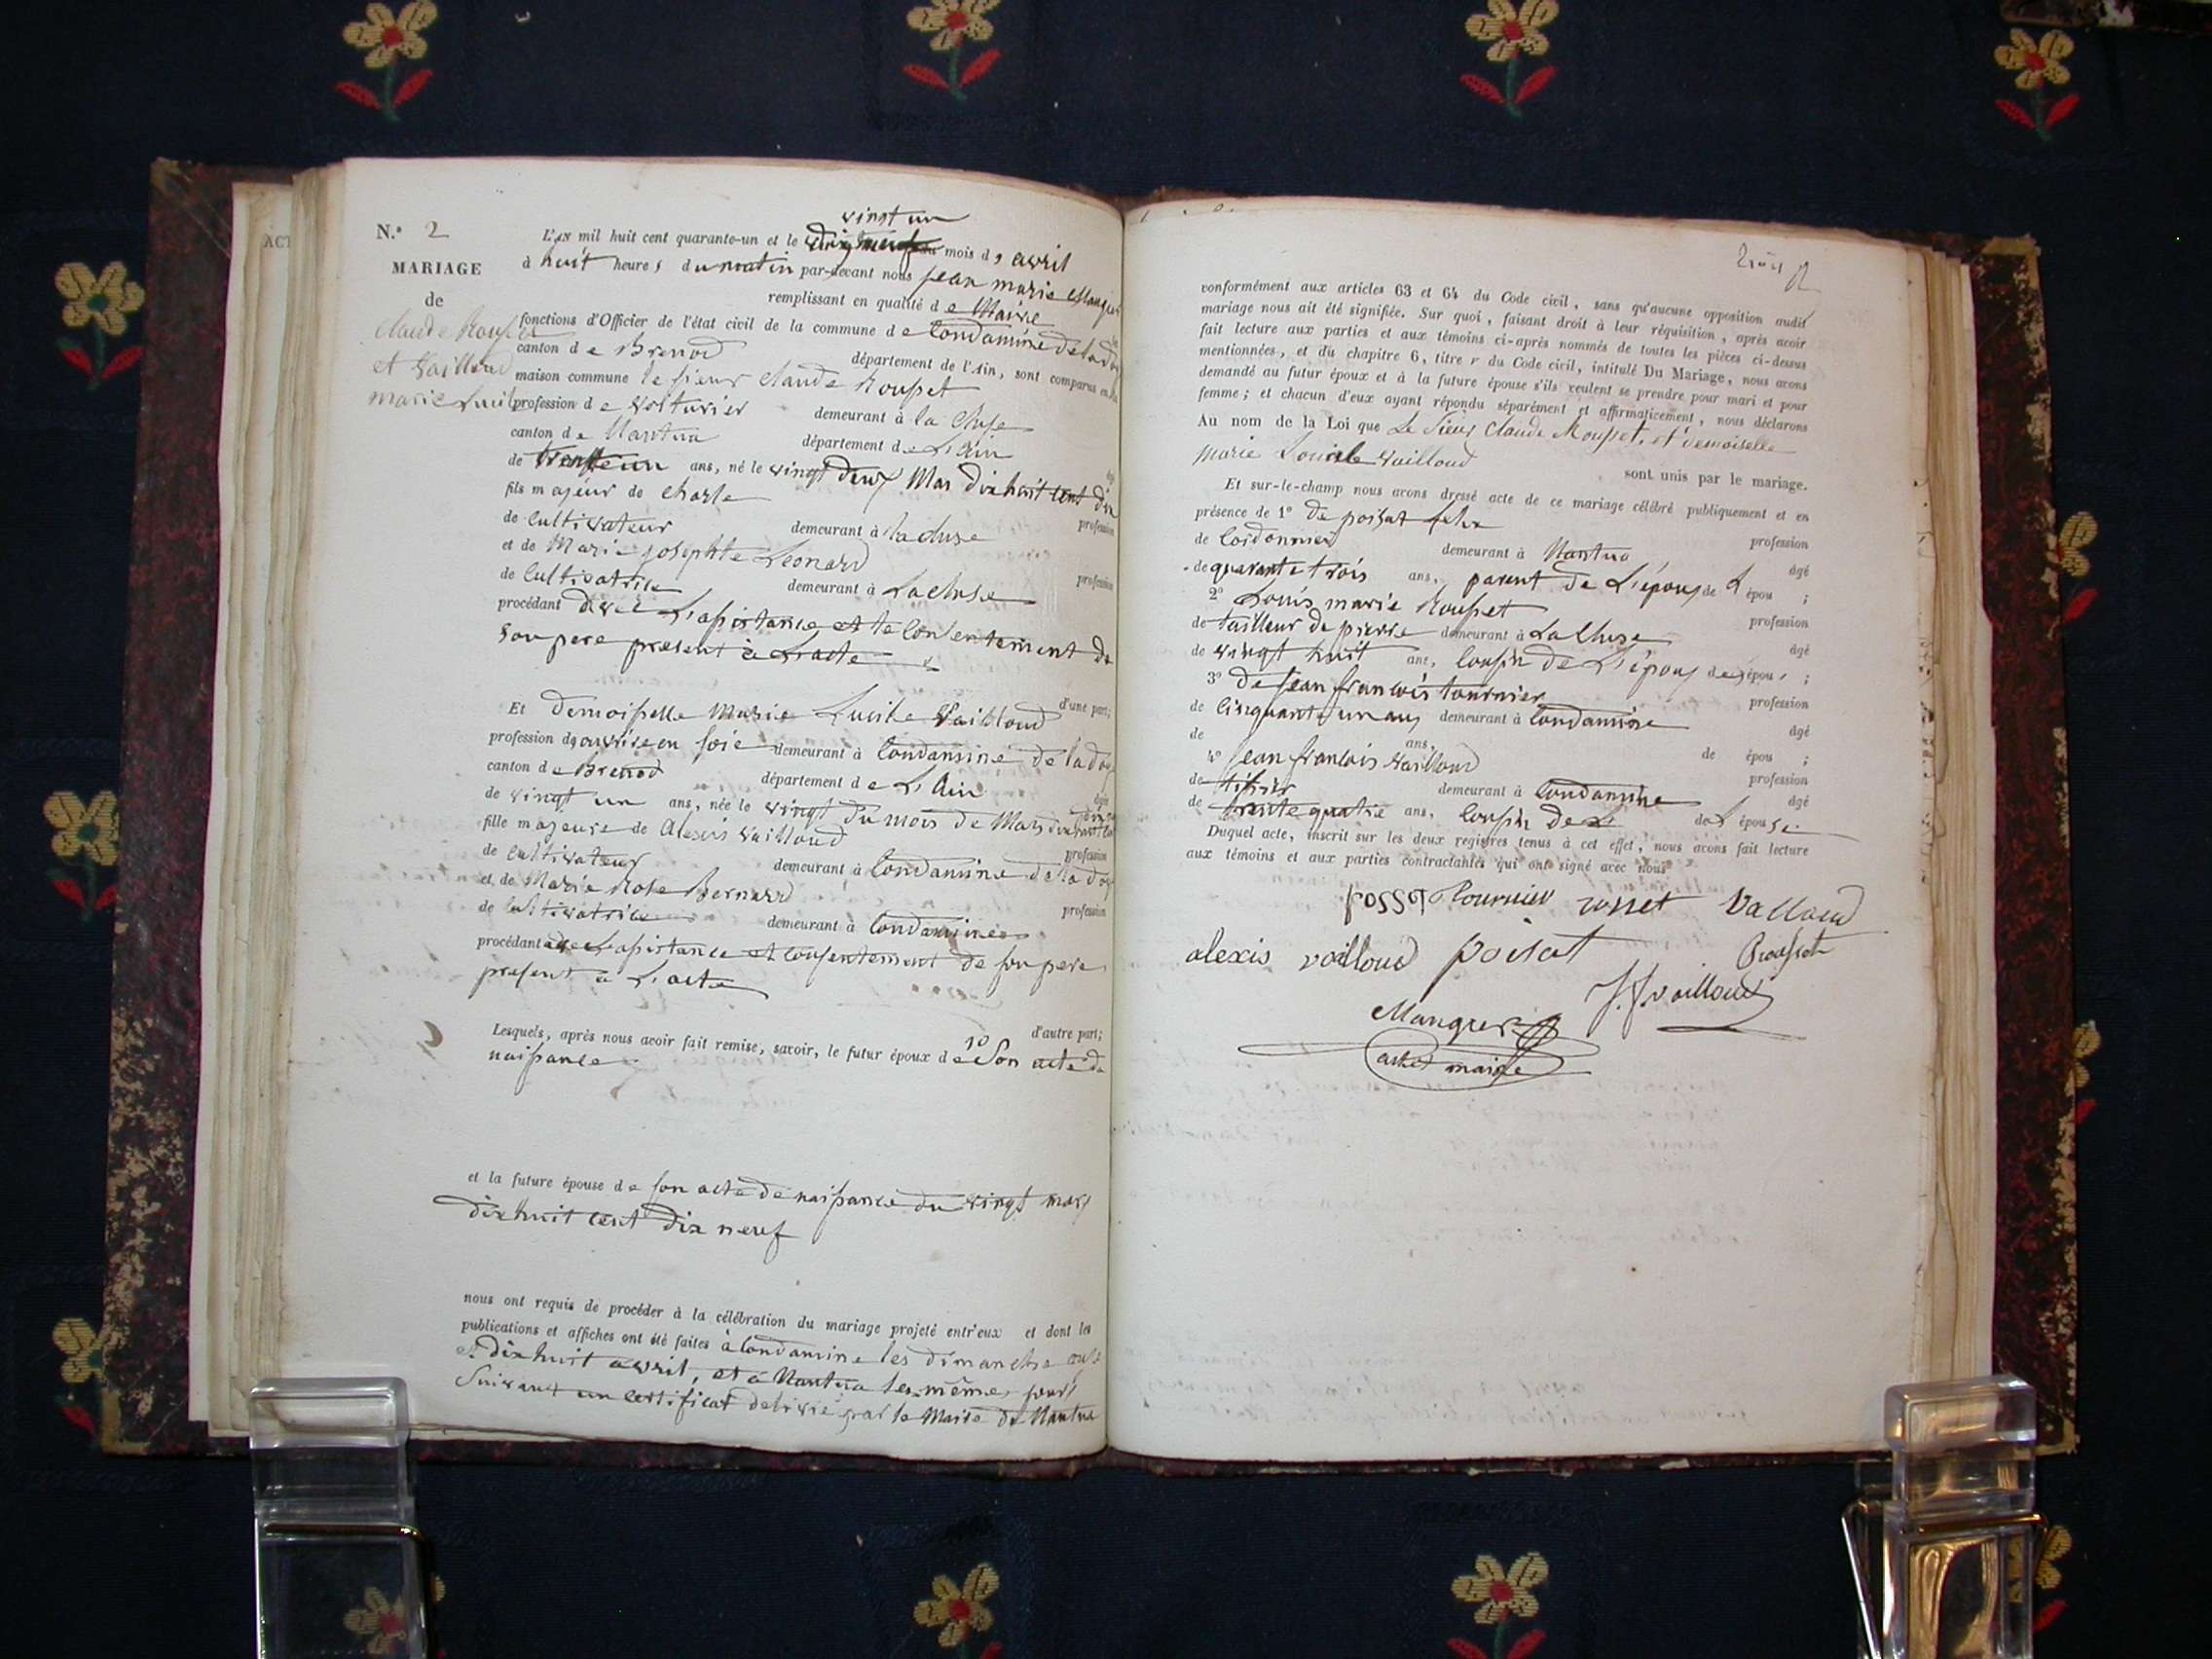 N.° 2
MARIAGE
de
Claude Rousset
et Vailloud
marie Lucile
vingt un
L'an mil huit cent quarante-un et le du mois d'avril
à huit heures du matin par-devant nous jean marie Manguer
remplissant en qualité de Maire
fonctions d'Officier de l'état civil de la commune de Condamine de la doy
canton de Brenod département de l'Ain, sont comparus en la
maison commune le sieur claude Rousset
profession de voiturier demeurant à la Cluse
canton de Nantua département de L'ain
âgé
de trente un ans, né le vingt deux Mar dix huit cent dix
fils majeur de charle
profession
de cultivateur demeurant à la cluse
et de Marie josephte Leonard
profession
de cultivatrice demeurant à Lacluse
procédant avec L'assistance et le consentement de
son pere present à L'acte
d'une part;
Et demoiselle Marie Lucile Vailloud
profession de ouvrière en soie demeurant à Condamine de la doy
canton de Brenod département de L'Ain
âgée
de vingt un ans, née le vingt du mois de Mars dix huit cent
fille majeure de Alexis Vailloud
profession
de cultivateur demeurant à Condamine de la doy
et de Marie Rose Bernard
profession
de cultivatrice demeurant à Condamine
procédant avec L'assistance et consentement de son pere
present a L'acte
d'autre part;
Lesquels, après nous avoir fait remise, savoir, le futur époux de 1° Son acte de
naissance
et la future épouse de son acte de naissance du vingt mars
dix huit cent dix neuf
nous ont requis de procéder à la célébration du mariage projeté entr'eux et dont les
publications et affiches ont été faites à Condamine les dimanche onze
et dix huit avril, et à Nantua les même jours
Suivant un certificat delivré par le Maire de Nantua
conformément aux articles 63 et 64 du Code civil, sans qu'aucune opposition audit
mariage nous ait été signifiée. Sur quoi, faisant droit à leur réquisition, après avoir
fait lecture aux parties et aux témoins ci-après nommés de toutes les pièces ci-dessus
mentionnées, et du chapitre 6, titre v du Code civil, intitulé Du Mariage, nous avons
demandé au futur époux et à la future épouse s'ils veulent se prendre pour mari et pour
femme; et chacun d'eux ayant répondu séparément et affirmativement, nous déclarons
Au nom de la Loi que Le Sieur Claude Rousset, et demoiselle
Marie Louicile Vailloud
sont unis par le mariage.
Et sur-le-champ nous avons dressé acte de ce mariage célébré publiquement et en
présence de 1° de poisat felix
profession
de Cordonnier demeurant à Nantua
âgé
de quarante trois ans, parent de L'epoux de L épou ;
2° Louis marie Rousset
profession
de tailleur de pierre demeurant à La Cluse
âgé
de vingt huit ans, cousin de L'époux de épou ;
3° de jean francois tournier
profession
de Cinquante un ans demeurant à Condamine
âgé
de ans, de épou ;
4° jean francois Vailloud
profession
de tisser demeurant à Condamine
âgé
de trente quatre ans, Cousin de L de L épouse
Duquel acte, inscrit sur les deux registres tenus à cet effet, nous avons fait lecture
aux témoins et aux parties contractantes qui ont signé avec nous
Tournier rosset Valloud
alexis vailloud poisat Rousset
J. f. vailloud
Manguer
maire